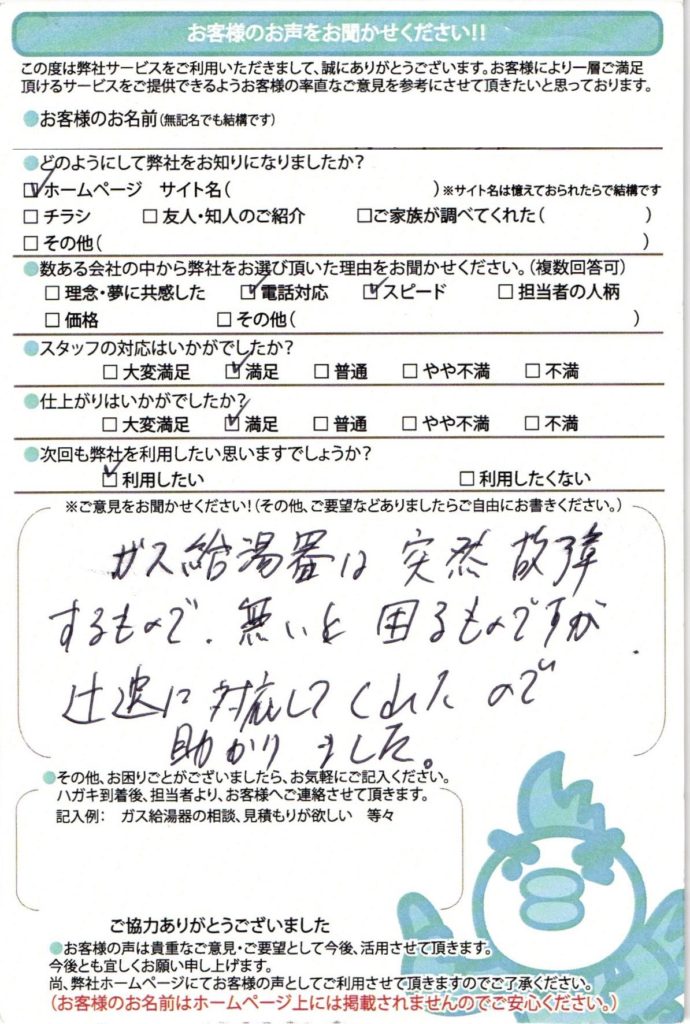 お客様のお声をお聞かせください!!
この度は弊社サービスをご利用いただきまして、誠にありがとうございます。お客様により一層ご満足
頂けるサービスをご提供できるようお客様の率直なご意見を参考にさせて頂きたいと思っております。
●お客様のお名前(無記名でも結構です)
●どのようにして弊社をお知りになりましたか?
☑ホームページ サイト名( )※サイト名は憶えておられたらで結構です
□チラシ □友人・知人のご紹介 □ご家族が調べてくれた( )
□その他( )
●数ある会社の中から弊社をお選び頂いた理由をお聞かせください。(複数回答可)
□理念・夢に共感した ☑電話対応 ☑スピード □担当者の人柄
□価格 □その他( )
●スタッフの対応はいかがでしたか?
□大変満足 ☑満足 □普通 □やや不満 □不満
●仕上がりはいかがでしたか?
□大変満足 ☑満足 □普通 □やや不満 □不満
●次回も弊社を利用したい思いますでしょうか?
☑利用したい □利用したくない
※ご意見をお聞かせください!(その他、ご要望などありましたらご自由にお書きください。)
ガス給湯器は突然故障
するもので、無いと困るものですが、
迅速に対応してくれたので
助かりました。
●その他、お困りごとがございましたら、お気軽にご記入ください。
ハガキ到着後、担当者より、お客様へご連絡させて頂きます。
記入例: ガス給湯器の相談、見積もりが欲しい 等々
ご協力ありがとうございました
●お客様の声は貴重なご意見・ご要望として今後、活用させて頂きます。
今後とも宜しくお願い申し上げます。
尚、弊社ホームページにてお客様の声としてご利用させて頂きますのでご了承ください。
(お客様のお名前はホームページ上には掲載されませんのでご安心ください。)